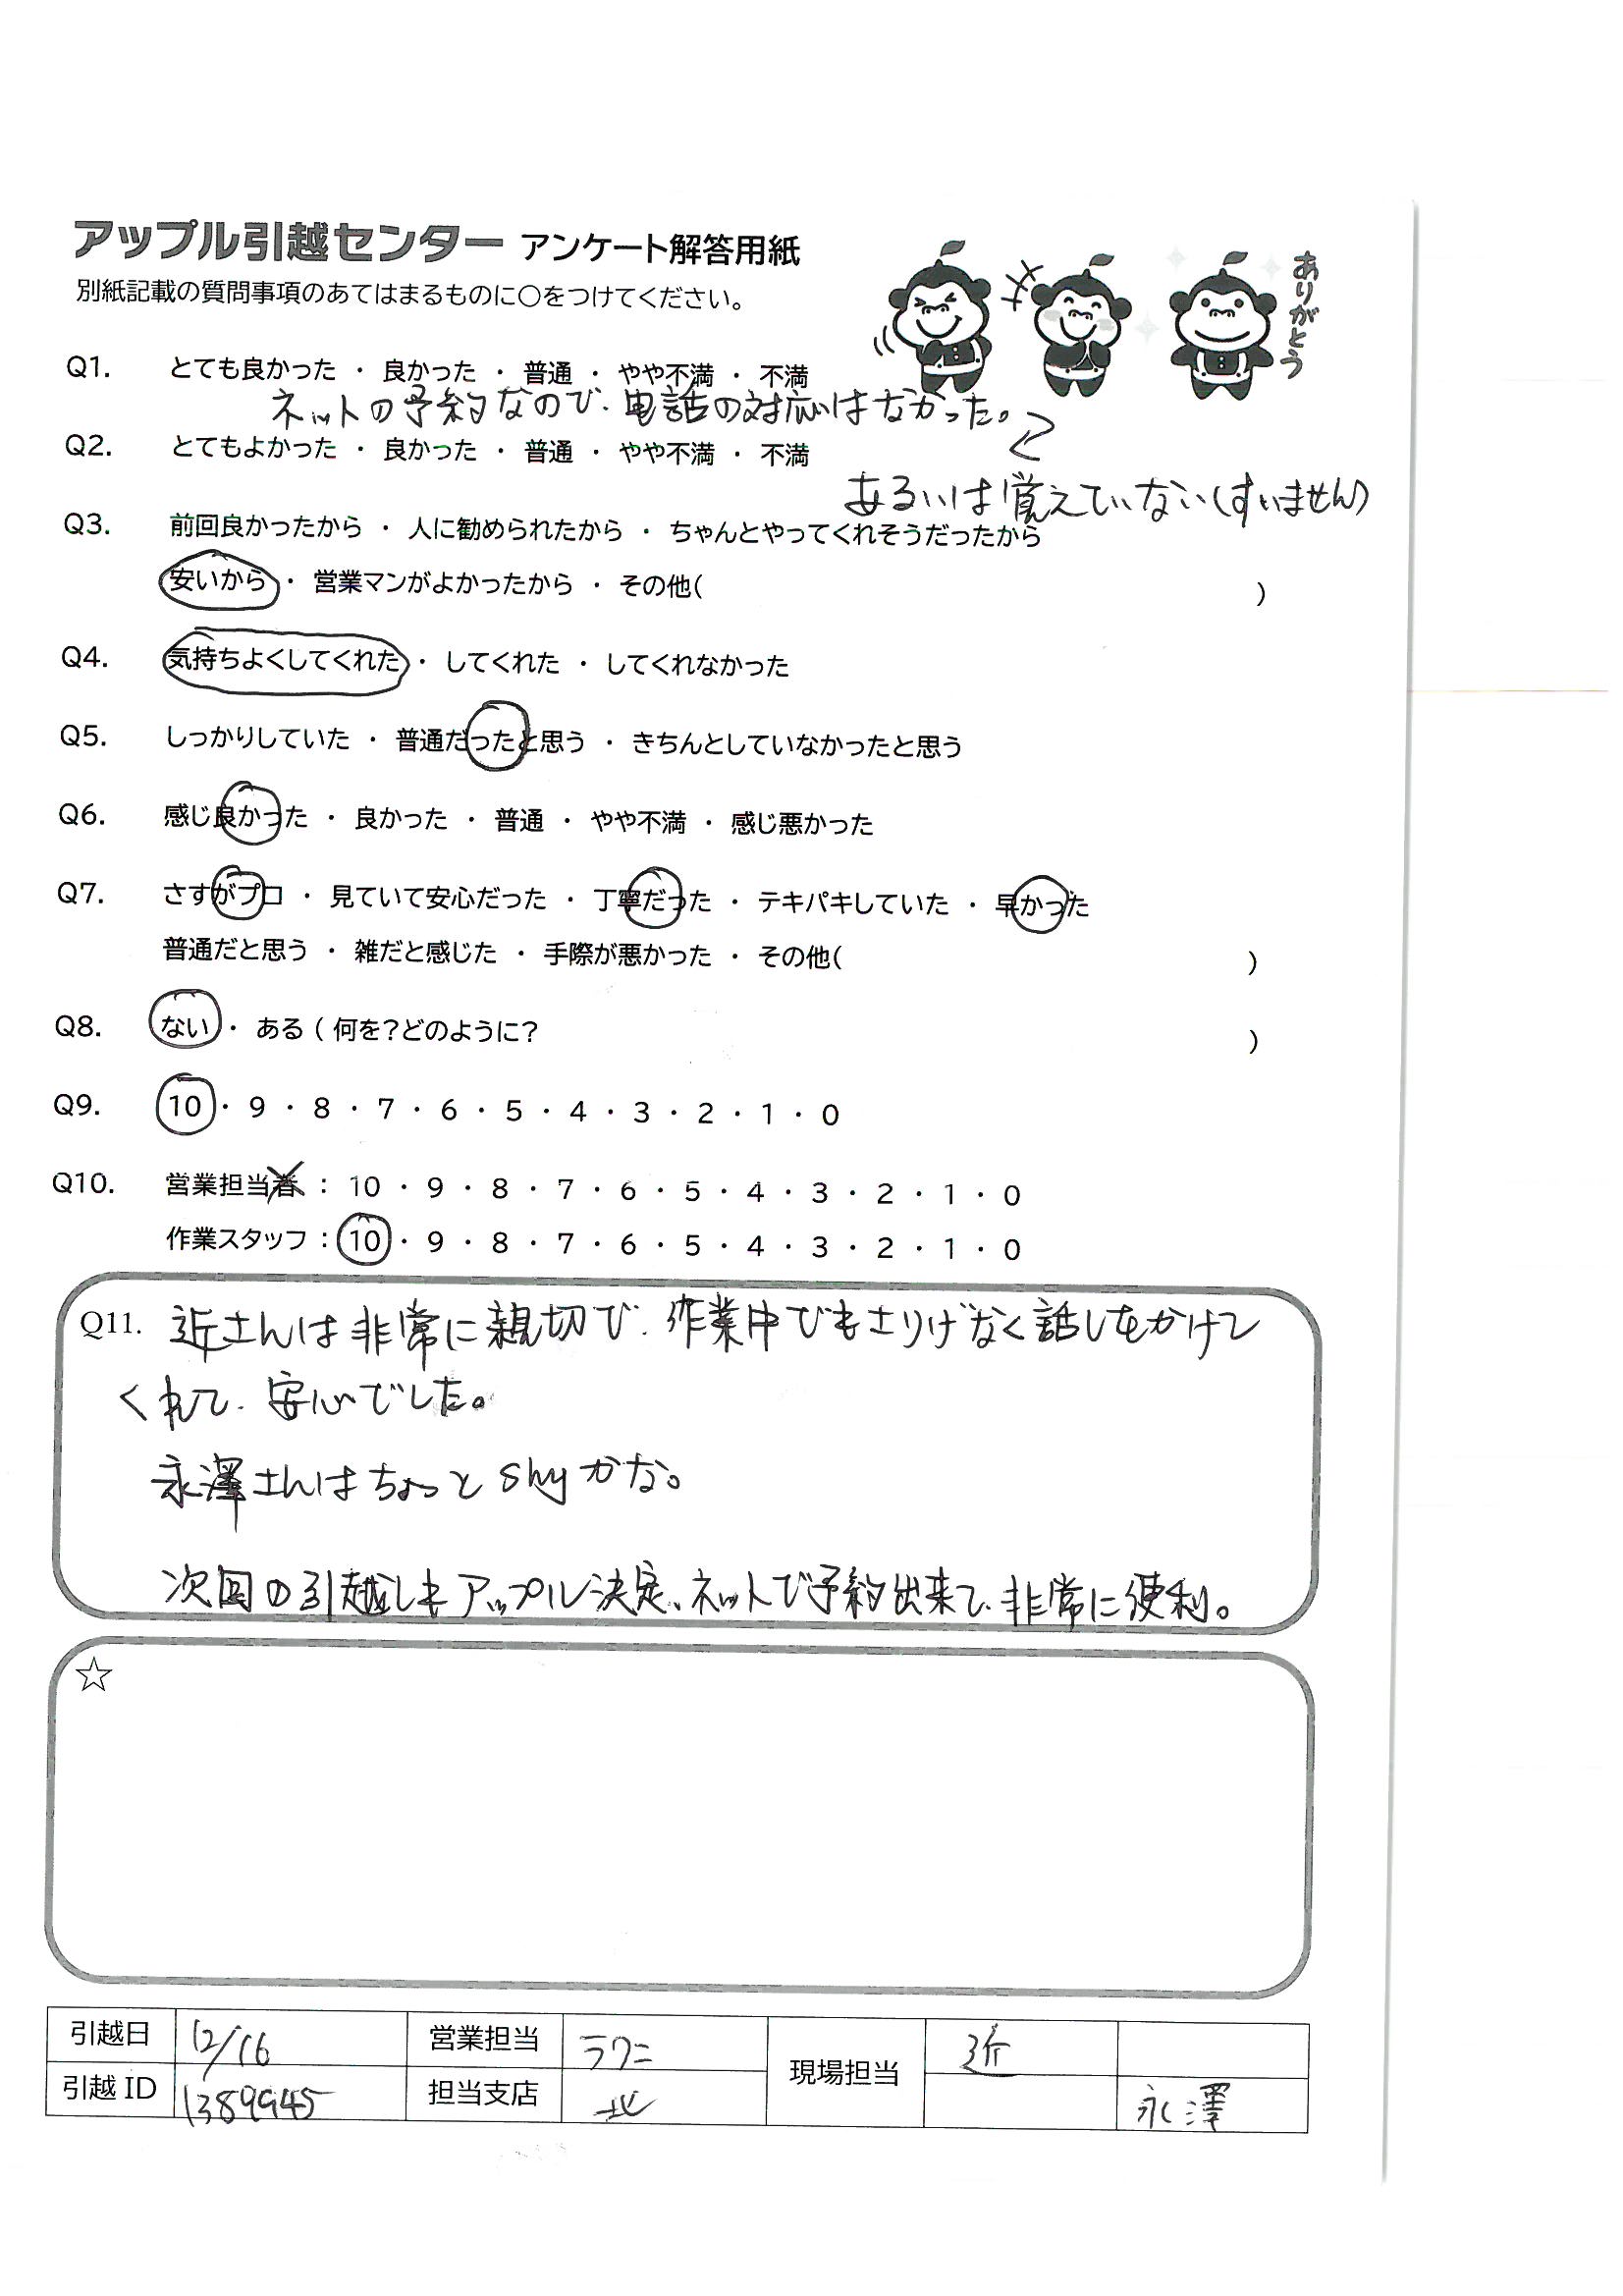 アップル引越センター アンケート解答用紙
ありがとう
別紙記載の質問事項のあてはまるものに○をつけてください。
Q1. とても良かった ・ 良かった ・ 普通 ・ やや不満 ・ 不満
ネットの予約なので、電話の対応はなかった。
Q2. とてもよかった ・ 良かった ・ 普通 ・ やや不満 ・ 不満
あるいは覚えていない(すいません)
Q3. 前回良かったから ・ 人に勧められたから ・ ちゃんとやってくれそうだったから
安いから ・ 営業マンがよかったから ・ その他( )
Q4. 気持ちよくしてくれた ・ してくれた ・ してくれなかった
Q5. しっかりしていた ・ 普通だったと思う ・ きちんとしていなかったと思う
Q6. 感じ良かった ・ 良かった ・ 普通 ・ やや不満 ・ 感じ悪かった
Q7. さすがプロ ・ 見ていて安心だった ・ 丁寧だった ・ テキパキしていた ・ 早かった
普通だと思う ・ 雑だと感じた ・ 手際が悪かった ・ その他( )
Q8. ない ・ ある ( 何を?どのように? )
Q9. 10 ・ 9 ・ 8 ・ 7 ・ 6 ・ 5 ・ 4 ・ 3 ・ 2 ・ 1 ・ 0
Q10. 営業担当者 : 10 ・ 9 ・ 8 ・ 7 ・ 6 ・ 5 ・ 4 ・ 3 ・ 2 ・ 1 ・ 0
作業スタッフ : 10 ・ 9 ・ 8 ・ 7 ・ 6 ・ 5 ・ 4 ・ 3 ・ 2 ・ 1 ・ 0
Q11. 近さんは非常に親切で、作業中でもさりげなく話しをかけて
くれて、安心でした。
永澤さんはちょっとshyかな。
次回の引越しもアップル決定、ネットで予約出来て、非常に便利。
☆
引越日 12/16 営業担当 ラクニ 現場担当 近
引越 ID 1389945 担当支店 北 永澤